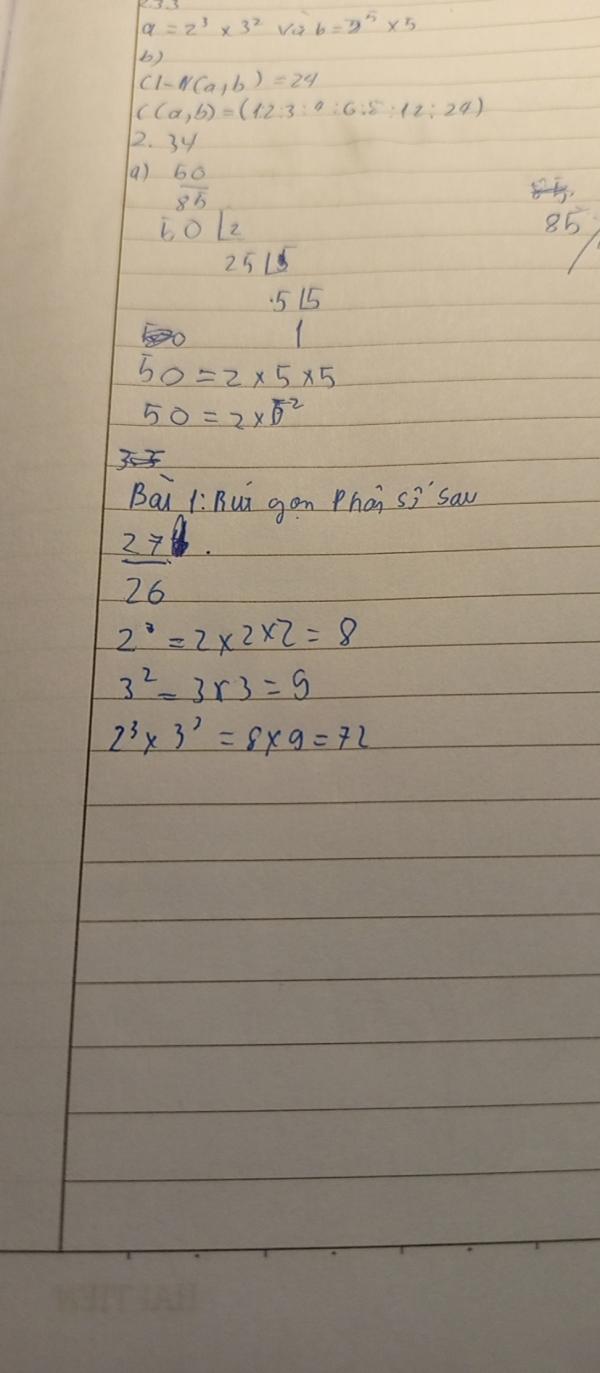 2.33
a = 2³ × 3² và b = 2⁵ × 5
b)
ƯCLN(a,b) = 24
ƯC(a,b) = (1 2; 3; 4; 6; 8; 12; 24)
2.34
a) 50
85
50 2
25 5
5 5
1
50 = 2 × 5 × 5
50 = 2 × 5²
85
Bài 1: Rút gọn phân số sau
27
26
2³ = 2 × 2 × 2 = 8
3² = 3 × 3 = 9
2³ × 3² = 8 × 9 = 72